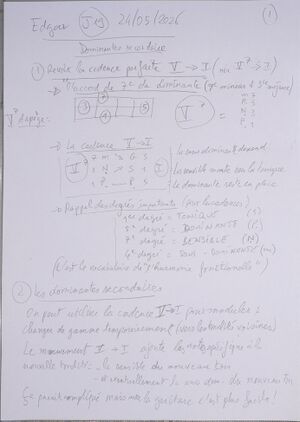 Edgar J19 24/05/2026
①
Dominantes secondaires
① Revoir la cadence parfaite V → I (ou V7 → I)
"L'accord de 7e de dominante" (7e mineure + 3ce majeure)
V7 Arpège =
③ ⑤
V7 =
→ La cadence V → I
V7 I
La sous dominante descend
La sensible monte vers la tonique
La dominante reste en place
→ Rappel des degrés importants
1er degré = TONIQUE
5e degré = DOMINANTE
7e degré = SENSIBLE (N)
4e degré = SOUS-DOMINANTE
(C'est le vocabulaire de "l'harmonie fonctionnelle")
② Les dominantes secondaires
On peut utiliser la cadence V→I pour moduler :
changer de gamme temporairement (vers les tonalités voisines)
Le mouvement V → I ajoute les notes spécifiques à la
nouvelle tonalité : la sensible du nouveau ton
et éventuellement la sous dom. du nouveau ton
Ça paraît compliqué mais sur la guitare c'est plus facile !